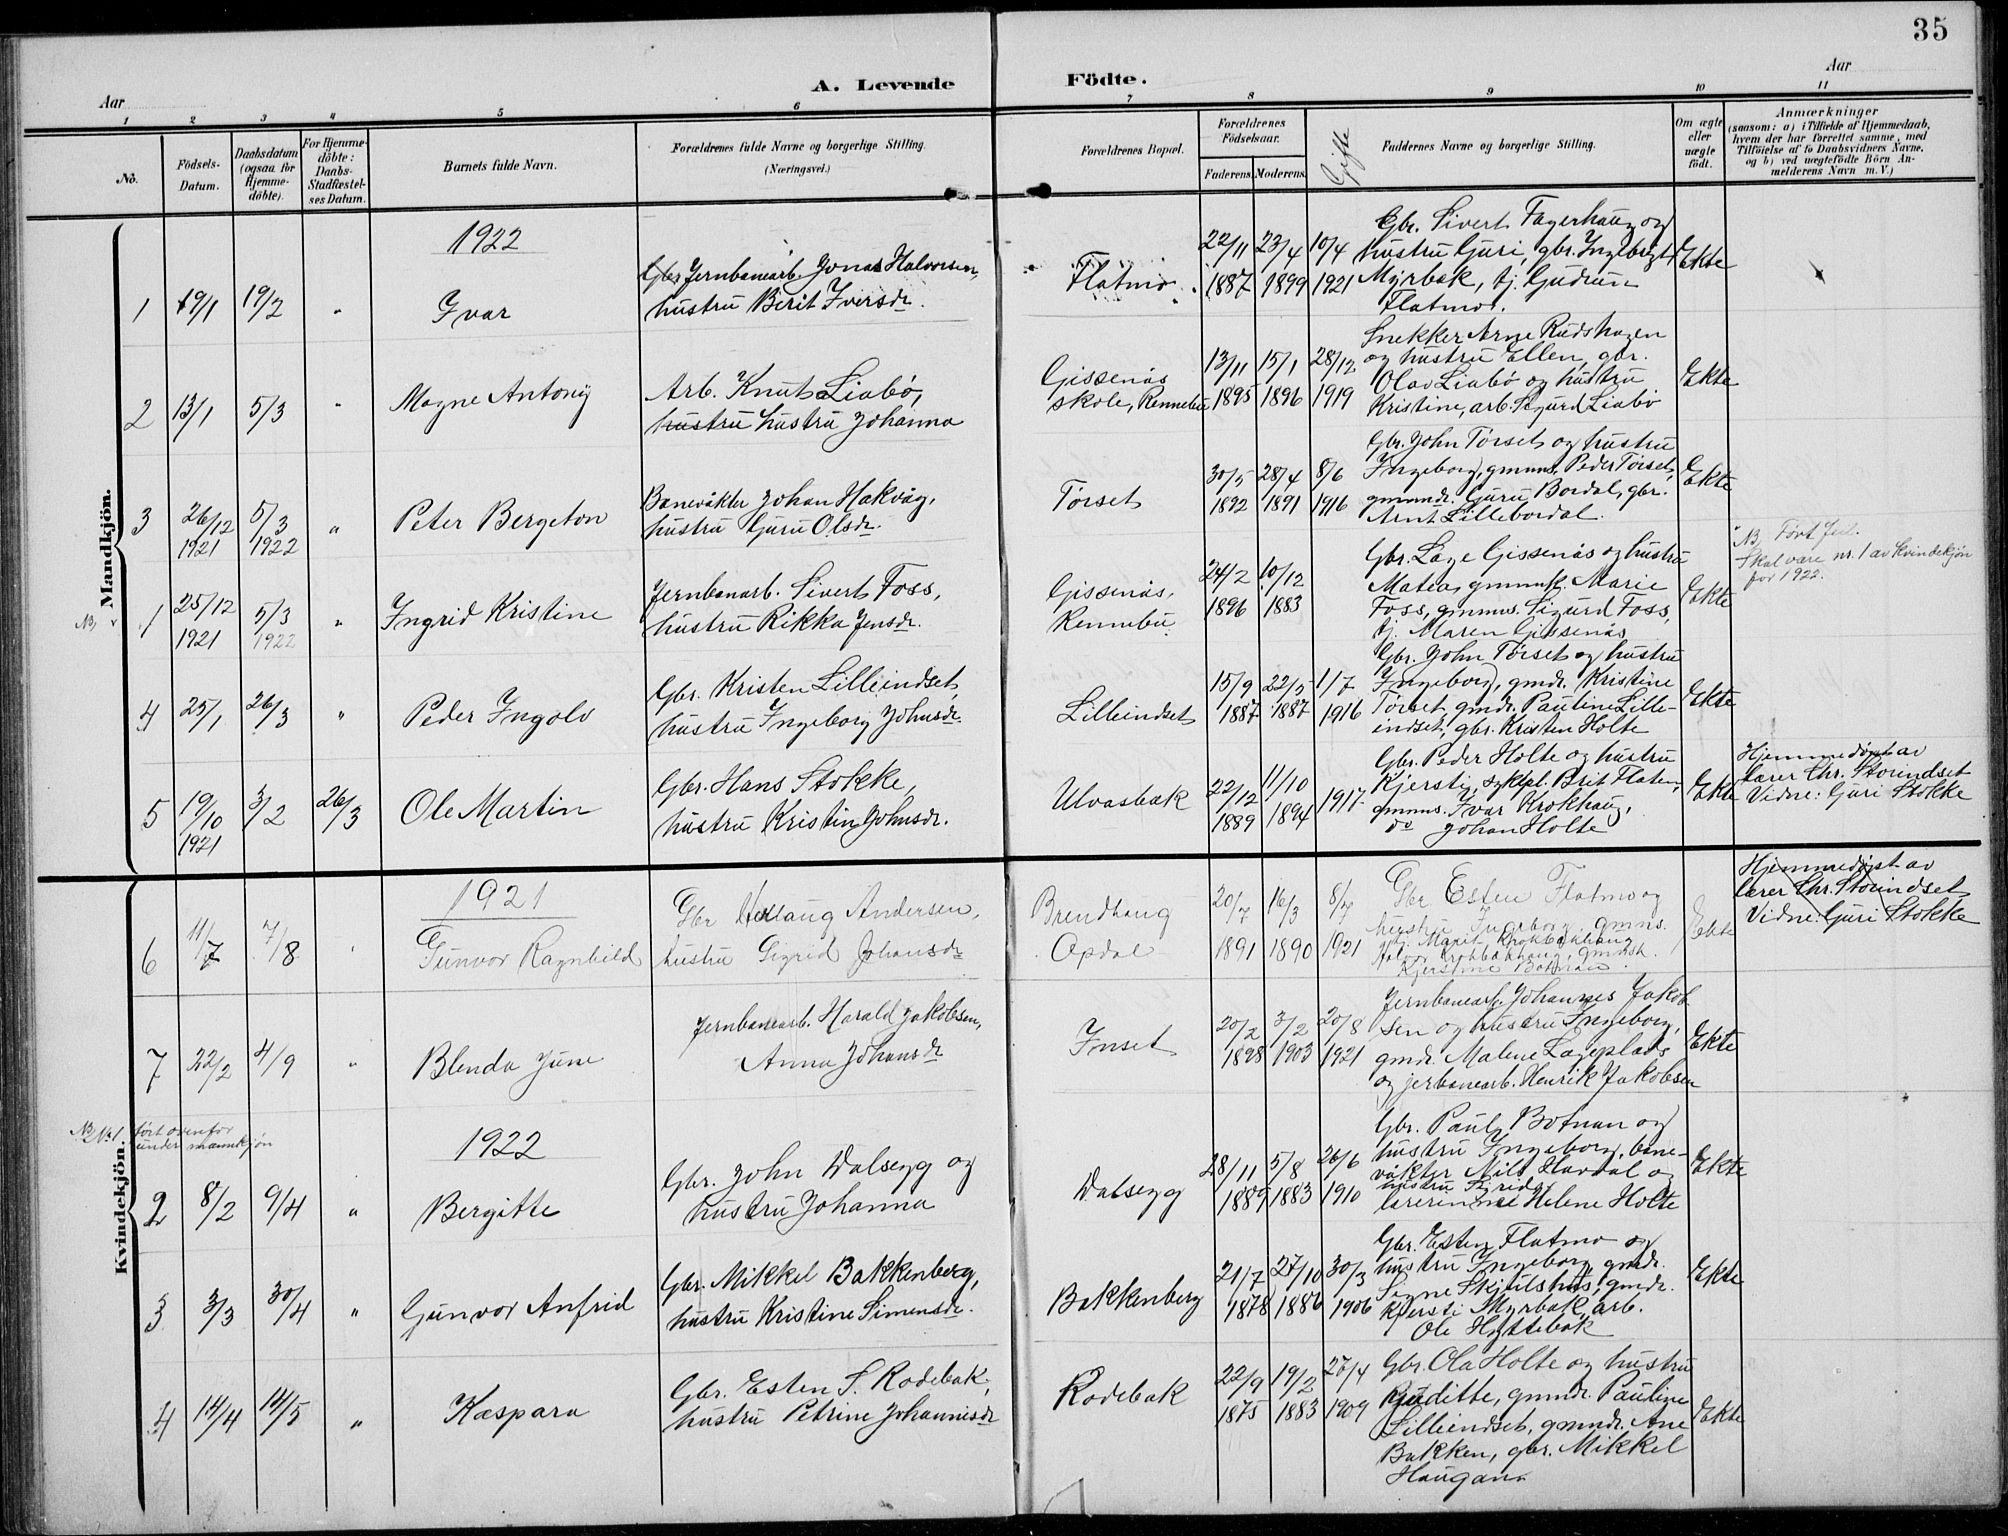 35
A. Levende Födte.
Aar
Aar
1 2 3 4 5 6 7 8 9 10 11
No.
Födsels-
Datum.
Daabsdatum
(ogsaa for
Hjemme-
döbte).
For Hjemme-
döbte:
Daabs-
Stadfæstel-
ses Datum.
Barnets fulde Navn.
Forældrenes fulde Navne og borgerlige Stilling.
(Næringsvei.)
Forældrenes Bopæl.
Forældrenes
Födselsaar.
Faderens.
Moderens.
Gifte
Faddernes Navne og borgerlige Stilling.
Om ægte
eller
uægte
födt.
Anmærkninger
(saasom: a) i Tilfælde af Hjemmedaab,
hvem der har forrettet samme, med
Tilföielse af to Daabsvidners Navne,
og b) ved uægtefödte Börn An-
melderens Navn m. V.)
Mandkjön.
1922
1 19/1 19/2 " Ivar
Gbr. Jernbanearb. Jonas Halvorsen,
hustru Berit Iversdr.
Flatmo.
22/11 1887
23/4 1899
10/4 1921
Gbr. Sivert Fagerhaug og
hustru Guri, gbr. Ingebrigt
Myrbak, tj. Gudrun
Flatmo.
Ekte
2 13/1 5/3 " Magne Antony
Arb. Knut Liabø,
hustru hustru Johanna
Gissenås
skole, Rennebu
13/11 1895
15/1 1896
28/12 1919
Snekker Arne Rudshagen
og hustru Ellen, gbr.
Olav Liabø og hustru
Kristine, arb. Sigurd Liabø
Ekte
3 26/12 1921 5/3 1922 " Peter Bergeton
Banevåkter Johan Hakvåg,
hustru Guru Olsdr.
Tørset
30/5 1892
28/4 1891
8/6 1916
Gbr. John Tørset og hustru
Ingeborg, gmms. Peder Tørset,
gmmdr. Guru Bordal, gbr.
Arnt Lillebordal.
Ekte
NB. 1 25/12 1921 5/3 1922 " Ingrid Kristine
Jernbanarb. Sivert Foss,
hustru Rikka Jensdr.
Gissenås,
Rennebu
24/2 1896
10/12 1883
Gbr. Lage Gissenås og hustru
Matea, gmmk. Marie
Foss, gmms. Sigurd Foss,
tj. Maren Gissenås
Ekte
NB. Ført feil.
Skal være nr. 1 av kvindekjøn
for 1922.
4 25/1 26/3 " Peder Ingolv
Gbr. Kristen Lilleindset,
hustru Ingeborg Johnsdr.
Lilleindset
15/9 1887
22/5 1887
1/7 1916
Gbr. John Tørset og hustru
Ingeborg, gmdr. Kristine
Tørset, gmdr. Pauline Lille-
indset, gbr. Kristen Holte
Ekte
5 19/10 1921 3/2 26/3 Ole Martin
Gbr. Hans Stokke,
hustru Kristine Johnsdr.
Ulvasbak
22/12 1889
11/10 1894
1917
Gbr. Peder Holte og hustru
Kjersti, sykepl. Brit Flaten,
gmms. Ivar Krokhaug,
do Johan Holte
Ekte
Hjemmedøpt av
lærer Chr. Storindset
Vidne: Guri Stokke
Kvindekjön.
1921
6 11/7 7/8 " Gunvor Ragnhild
Gbr Hallaug Andersen,
hustru Sigrid Johansdr
Brendhaug
Opdal
20/7 1891
16/3 1890
8/7 1921
Gbr Esten Flatmo og
hustru Ingeborg, gmns.
tj. Marit Krokbakhaug
Halvor Krokbakhaug, gmmsk.
Kjerstine Botnan.
Ekte
Hjemmedøpt av
lærer Chr. Storindset
Vidne: Guri Stokke
7 22/2 4/9 " Blenda June
Jernbanearb. Harald Jakobsen,
Anna Johansdr
Innset
20/2 1898
3/2 1903
20/8 1921
Jernbanearb. Johannes Jakob-
sen og hustru Ingeborg,
gmdr. Malene Lageplads
og jerbanearb. Henrik Jakobsen
Ekte
NB No. 1 ført ovenfor
under mannkjøn
1922
2 8/2 9/4 " Bergitte
Gbr. John Dalsegg og
hustru Johanna
Dalsegg
28/11 1889
5/8 1883
26/6 1910
Gbr. Paul Botnan og
hustru Ingeborg, bane-
våkter Nils Havdal og
hustru Sigrid,
lærerinne Helene Holte
Ekte
3 3/3 30/4 " Gunvor Anfrid
Gbr. Mikkel Bakkenberg,
hustru Kristine Simensdr.
Bakkenberg
21/7 1878
27/10 1886
30/3 1906
Gbr. Esten Flatmo og
hustru Ingeborg, gmdr.
Signe Skjulshus, gmdr.
Kjersti Myrbak, arb.
Ole Hyttebak
Ekte
4 14/4 14/5 " Kaspara
Gbr. Esten S. Rodebak,
hustru Petrine Johannisdr
Rodebak
22/9 1875
19/2 1883
27/4 1909
Gbr. Ola Holte og hustru
Juditte, gmmdr. Pauline
Lilleindset, gmmdr. Ane
Bakken, gbr. Mikkel
Haugana
Ekte